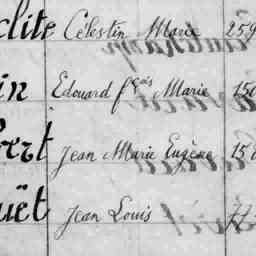 clite Célestin Marie 259
in Edouard fçois Marie 150
bert Jean Marie Eugène 15
uët Jean Louis 77